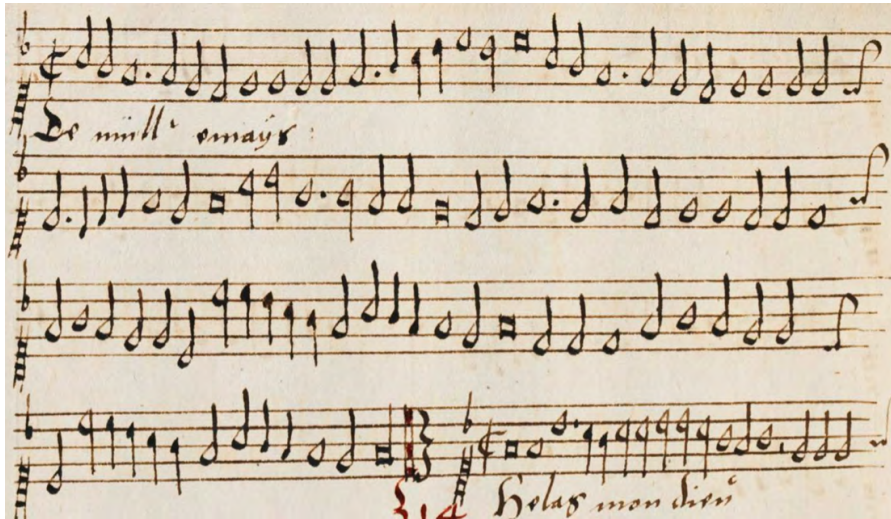 De müll' emays
Helas mon dieu